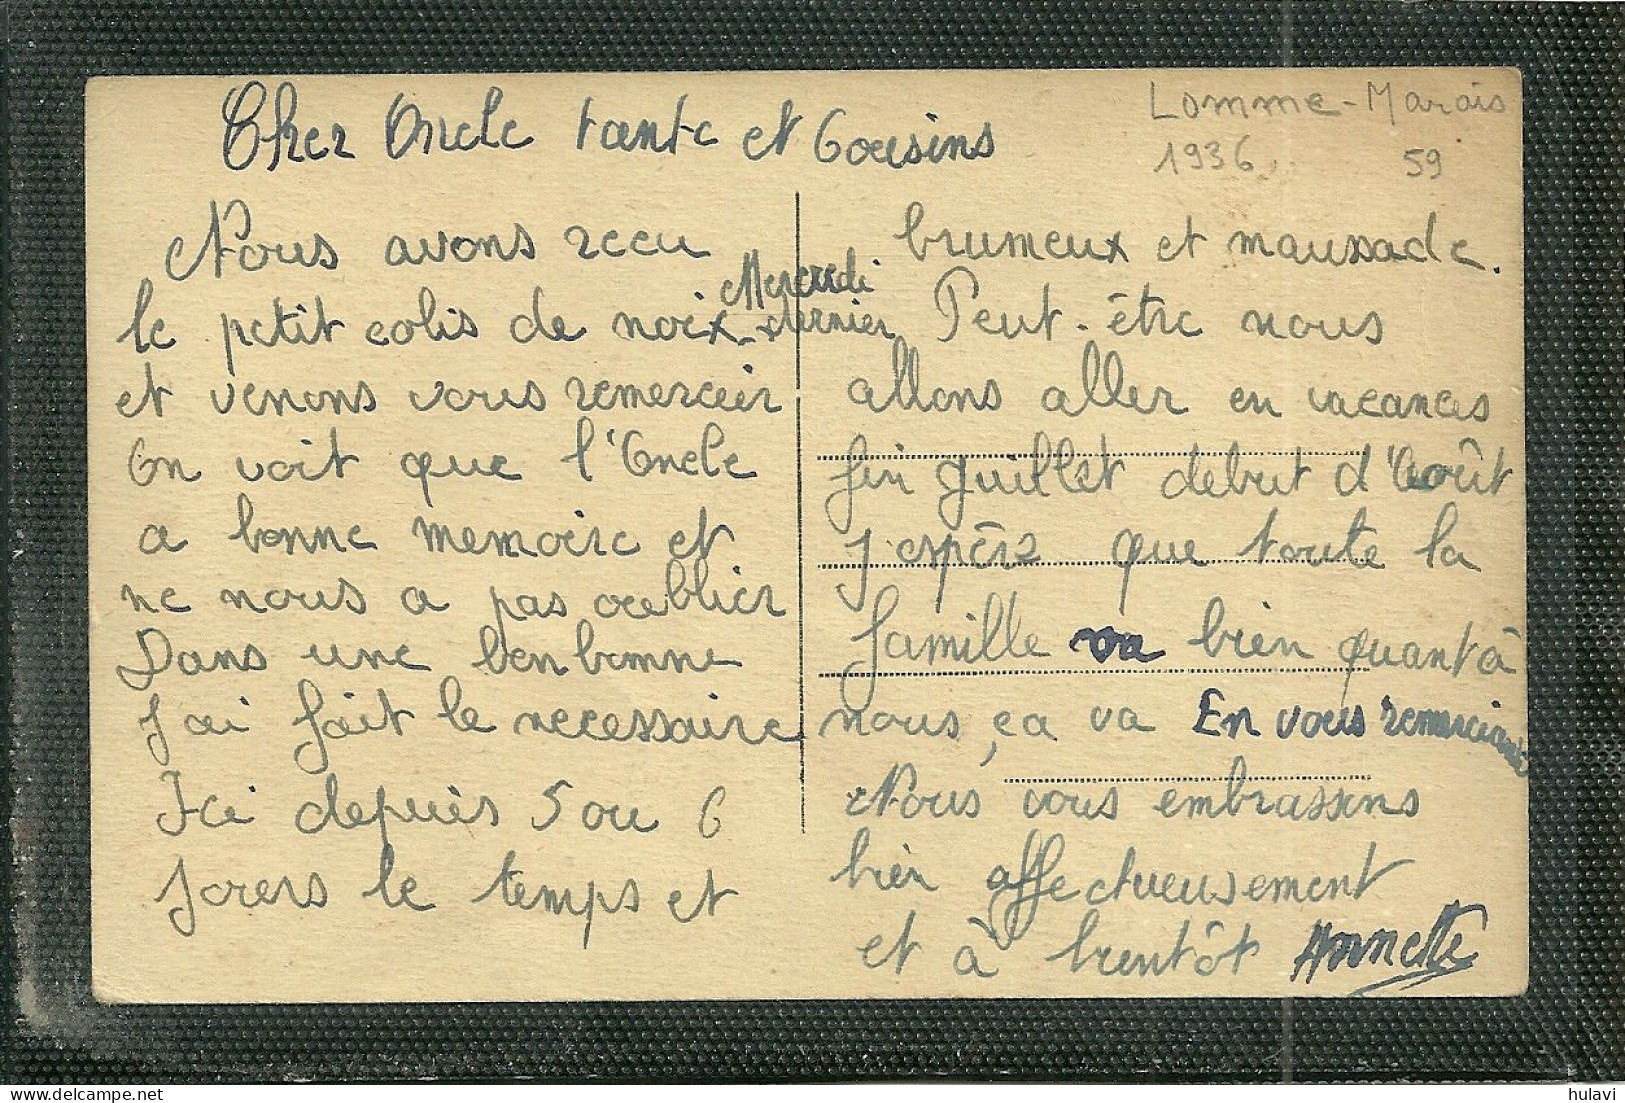 Lomme-Marais
1936
59
Cher Oncle tante et Cousins
Nous avons recu
le petit colis de noix Mercredi dernier
et venons vous remercier
On voit que l'Oncle
a bonne memoire et
ne nous a pas oublier
Dans une bonbonne
J'ai fait le necessaire
Ici depuis 5 ou 6
Jours le temps et
brumeux et maussade.
Peut-être nous
allons aller en vacances
fin Juillet debut d'Août
J'espère que toute la
famille va bien quant à
nous, ça va En vous remerciant
Nous vous embrassons
bien affectueusement
et à bientôt Annette
hulavi